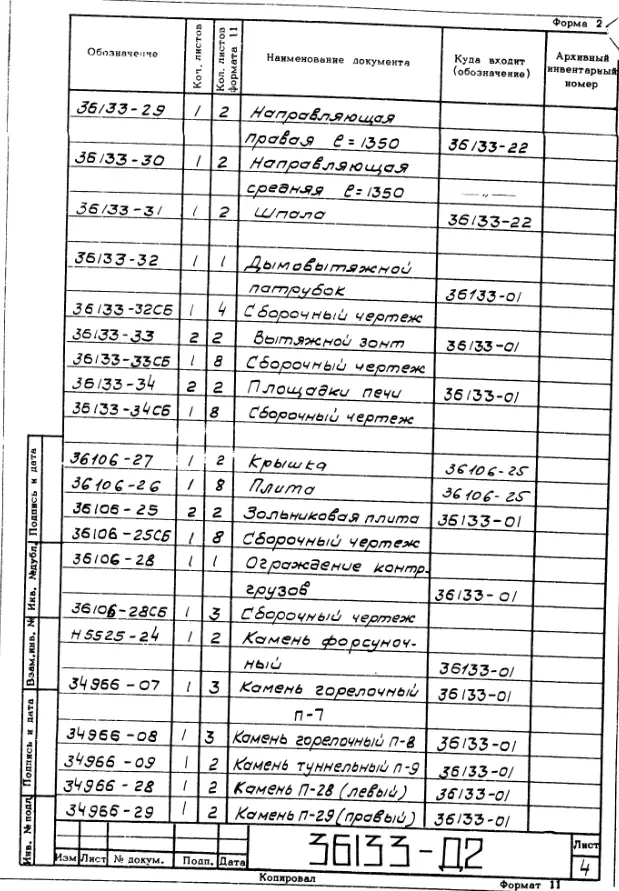 Форма 2
Обозначение Кол. листов Кол. листов формата 11 Наименование документа Куда входит (обозначение) Архивный инвентарный номер
36133-29 1 2 Направляющая
правая ℓ=1350 36133-22
36133-30 1 2 Направляющая
средняя ℓ=1350 —„—
36133-31 1 2 Шпала 36133-22
36133-32 1 1 Дымовытяжной
патрубок 36133-01
36133-32СБ 1 4 Сборочный чертеж
36133-33 2 2 Вытяжной зонт 36133-01
36133-33СБ 1 8 Сборочный чертеж
36133-34 2 2 Площадки печи 36133-01
36133-34СБ 1 8 Сборочный чертеж
36106-27 1 2 Крышка 36106-25
36106-26 1 8 Плита 36106-25
36106-25 2 2 Зольниковая плита 36133-01
36106-25СБ 1 8 Сборочный чертеж
36106-28 1 1 Ограждение контр-
грузов 36133-01
36106-28СБ 1 3 Сборочный чертеж
Н5525-24 1 2 Камень форсуноч-
ный 36133-01
34966-07 1 3 Камень горелочный 36133-01
п-7
34966-08 1 3 Камень горелочный п-8 36133-01
34966-09 1 2 Камень туннельный п-9 36133-01
34966-28 1 2 Камень П-28 (левый) 36133-01
34966-29 1 2 Камень П-29 (правый) 36133-01
Подпись и дата
Инв. №дубл.
Взам.инв. №
Подпись и дата
Инв. №подл
Изм Лист № докум. Подп. Дата
36133-Д2
Лист
4
Копировал Формат 11